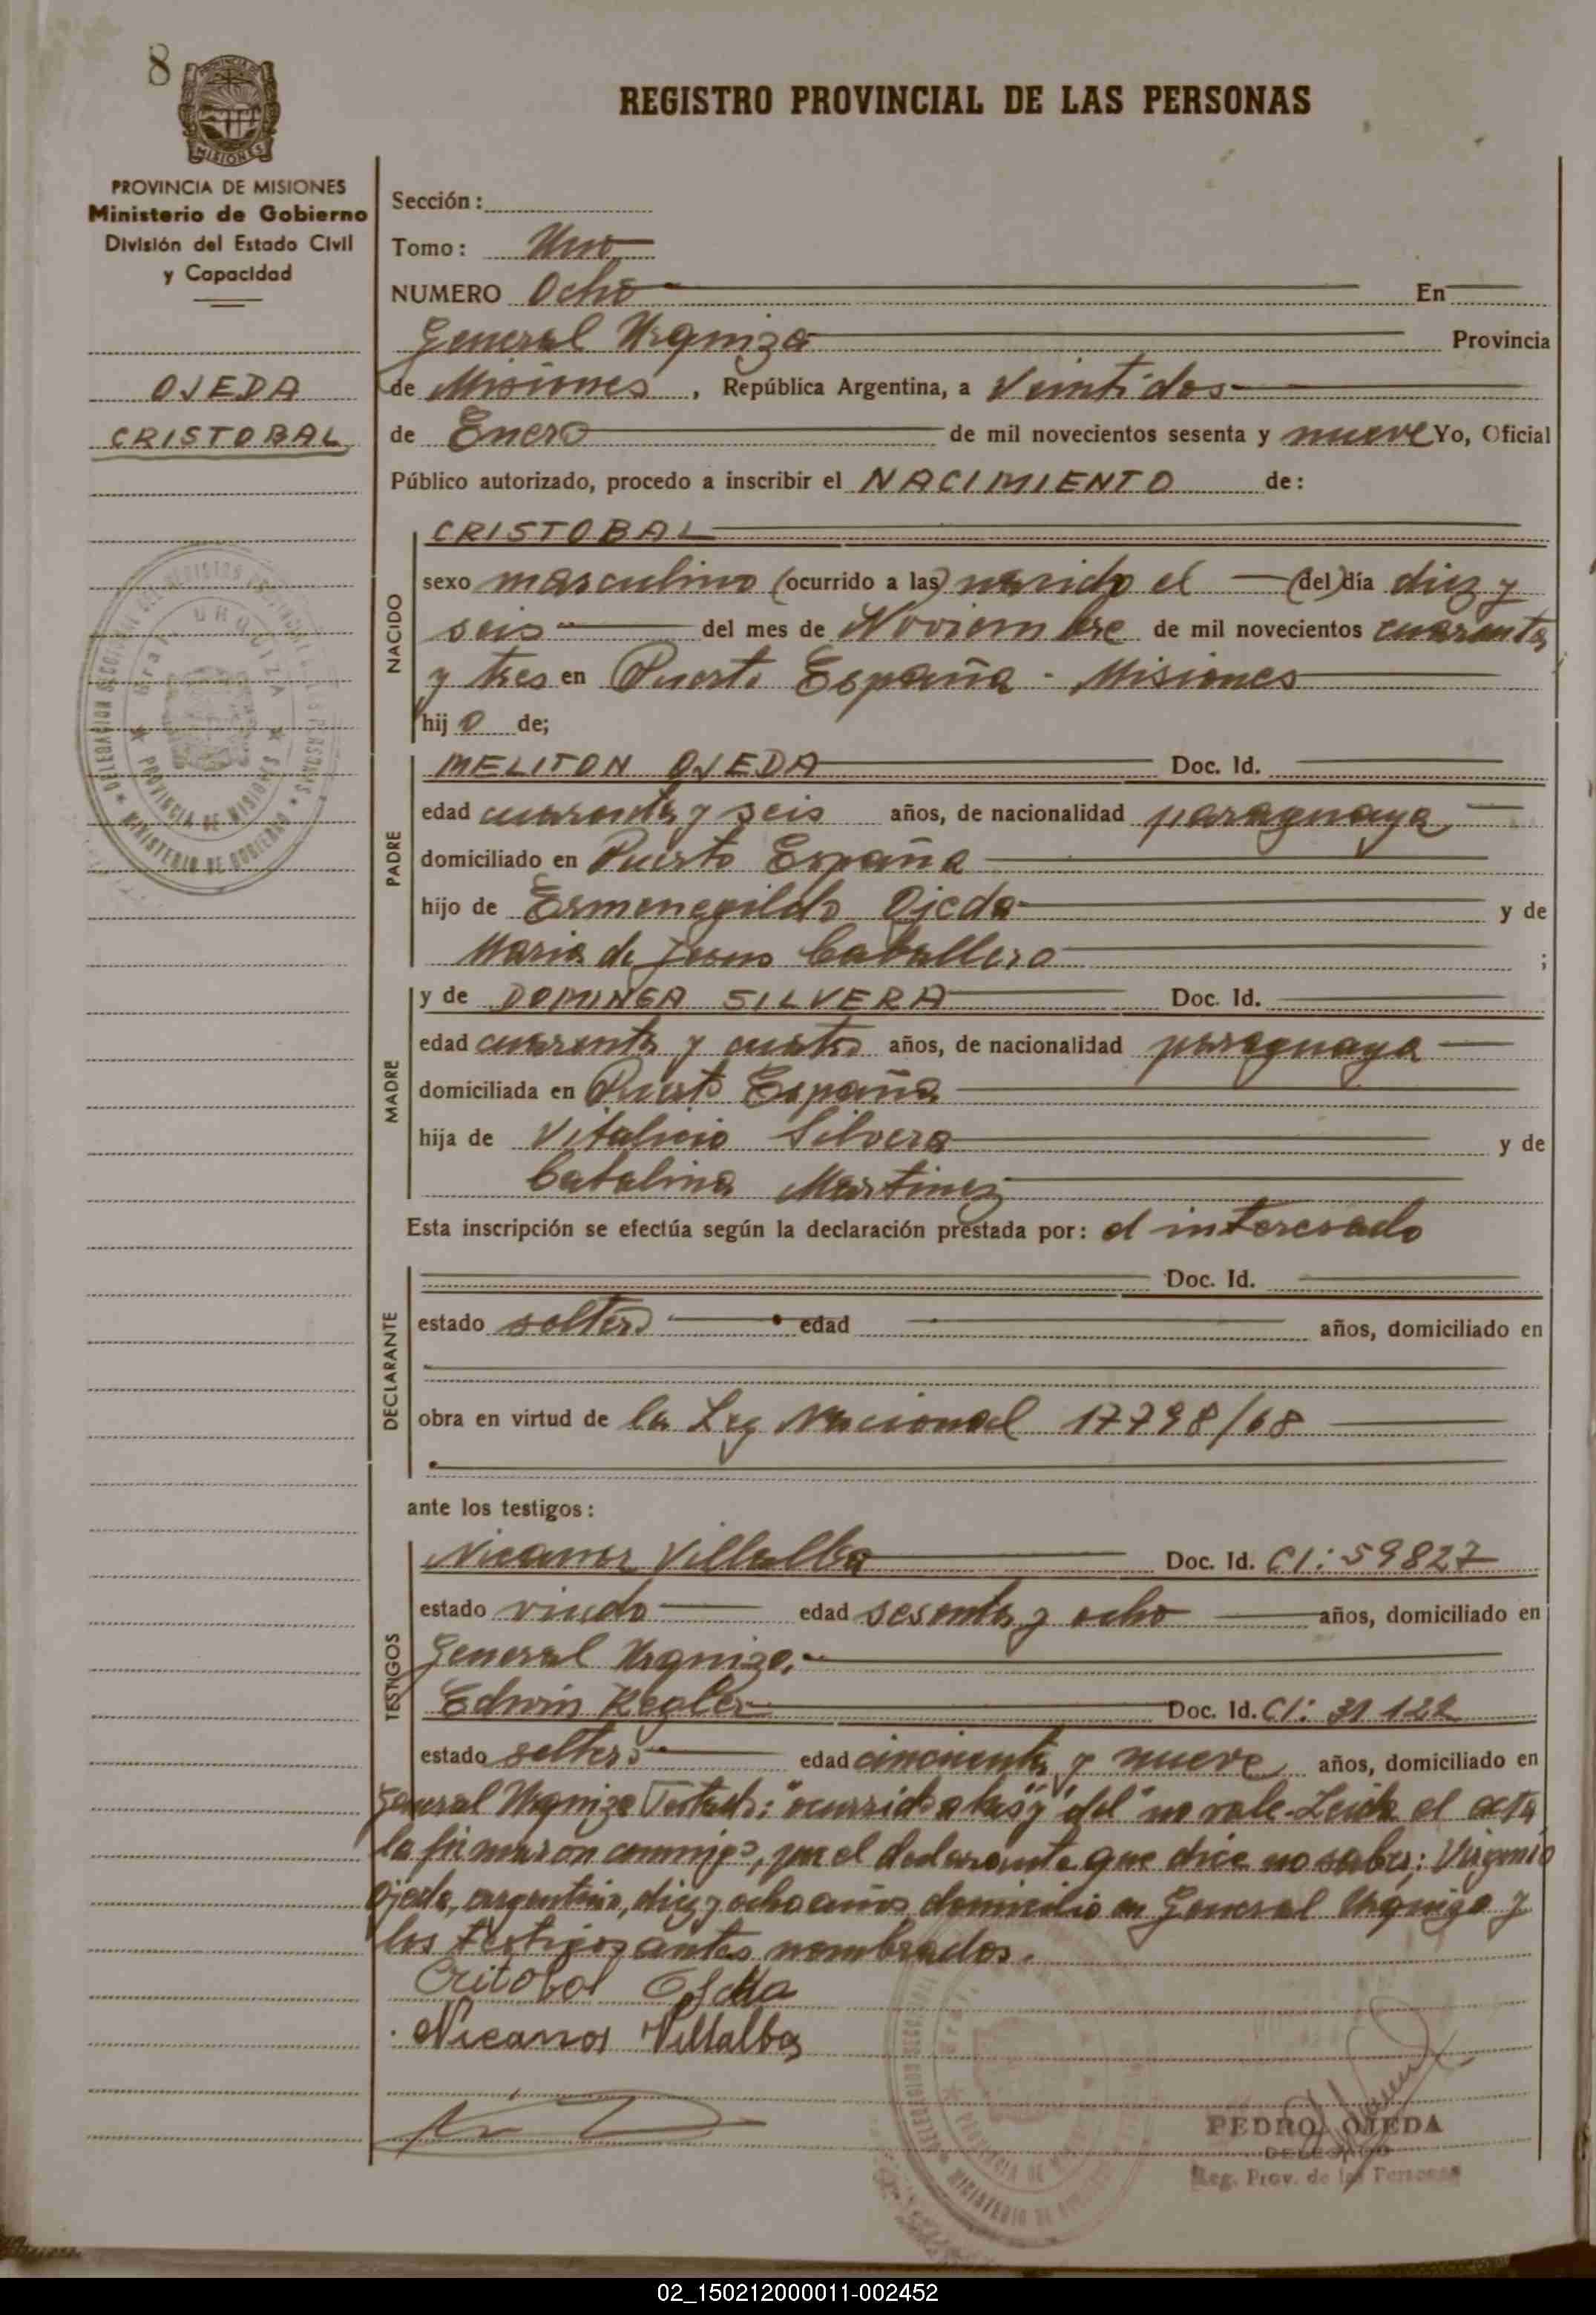 8
REGISTRO PROVINCIAL DE LAS PERSONAS
PROVINCIA DE MISIONES
Ministerio de Gobierno
División del Estado Civil
y Capacidad
OJEDA
CRISTOBAL
Sección:
Tomo: Uno
NUMERO Ocho En
General Urquiza Provincia
de Misiones, República Argentina, a Veintidos
de Enero de mil novecientos sesenta y nueve Yo, Oficial
Público autorizado, procedo a inscribir el NACIMIENTO de:
NACIDO
CRISTOBAL
sexo masculino (ocurrido a las) nacido el (del) día diez y
seis del mes de Noviembre de mil novecientos cuarenta
y tres en Puerto España - Misiones
hijo de;
PADRE
MELITON OJEDA Doc. Id.
edad cuarenta y seis años, de nacionalidad paraguaya
domiciliado en Puerto España
hijo de Ermenegildo Ojeda y de
Maria de Jesus Caballero ;
MADRE
y de DOMINGA SILVERA Doc. Id.
edad cuarenta y cuatro años, de nacionalidad paraguaya
domiciliada en Puerto España
hija de Vitalicio Silvera y de
Catalina Martinez
Esta inscripción se efectúa según la declaración prestada por: el interesado
DECLARANTE
Doc. Id.
estado soltero edad años, domiciliado en
obra en virtud de la Ley Nacional 17798/68
ante los testigos:
TESTIGOS
Nicanor Villalba Doc. Id. CI: 59827
estado viudo edad sesenta y ocho años, domiciliado en
General Urquiza.
Edwin Kegler Doc. Id. CI: 31 122
estado soltero edad cincuenta y nueve años, domiciliado en
General Urquiza Testado: "ocurrido a las" y "del" no vale - Leida el acta
la firmaron conmigo, por el declarante que dice no saber; Virginio
Ojeda, argentino, diez y ocho años domicilio en General Urquiza y
los testigos antes nombrados.
Critobol Ojeda
Nicanor Villalba
PEDRO OJEDA
DELEGADO
Reg. Prov. de las Personas
02_150212000011-002452